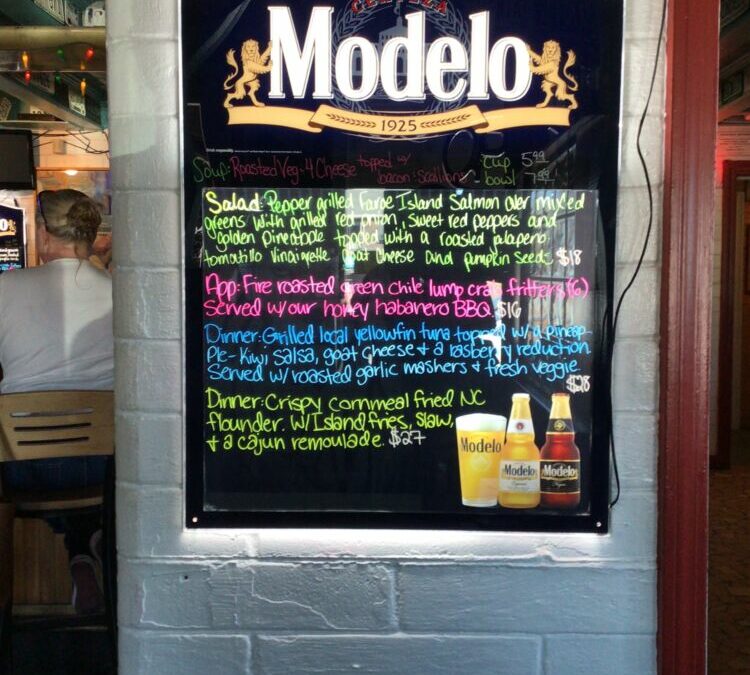 CERVEZA
Modelo
1925
Soup: Roasted Veg-4 Cheese topped w/ cup 5.99
bacon: scallions bowl 7.99
Salad: Pepper grilled Faroe Island Salmon over mixed
greens with grilled red onion, sweet red peppers and
golden Pineapple topped with a roasted jalapeno
tomatillo Vinaigrette goat cheese and pumpkin seeds $18
App: Fire roasted green chile lump crab fritters (6)
Served w/our honey habanero BBQ $16
Dinner: Grilled local yellowfin tuna topped w/ a pineap-
ple-Kiwi, salsa, goat cheese + a rasberry reduction
Served w/ roasted garlic mashers + fresh veggie
$28
Dinner: Crispy cornmeal fried NC
flounder. W/Island fries, slaw,
+ a cajun remoulade. $27
Modelo
Modelo
Modelo